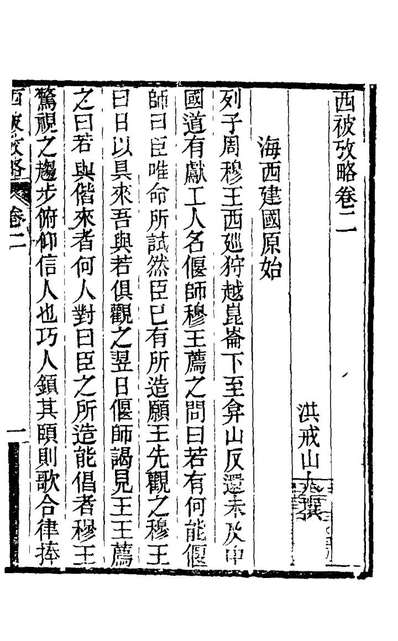 西被攷略卷二
洪戒山人撰
海西建國原始
列子周穆王西廵狩越崑崙下至弇山反還未及中
國道有獻工人名偃師穆王薦之問曰若有何能偃
師曰臣唯命所試然臣已有所造願王先觀之穆王
曰日以具來吾與若俱觀之翌日偃師謁見王王薦
之曰若與偕來者何人對曰臣之所造能倡者穆王
驚視之趨步俯仰信人也巧人鎖其頤則歌合律捧
西被攷略 卷二 一